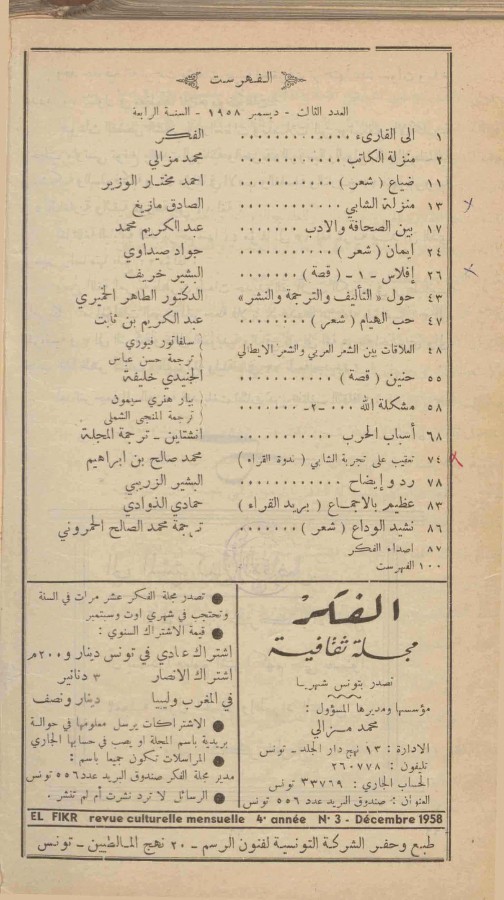 الفهرست
العدد الثالث - ديسمبر ١٩٥٨ - السنة الرابعة
١ الى القارىء ............ الفكر
٢ منزلة الكاتب ............ محمد مزالي
١١ ضياع ( شعر ) ............ احمد مختار الوزير
١٣ منزلة الشابي ............ الصادق مازيغ
١٧ بين الصحافة والادب ........ عبد الكريم محمد
٢٤ ايمان ( شعر ) ............ جواد صيداوي
٢٦ إفلاس - ١ - ( قصة ) ....... البشير خريف
٤٣ حول « التأليف والترجمة والنشر » الدكتور الطاهر الخميري
٤٧ حب الهيام ( شعر ) ........ عبد الكريم بن ثابت
٤٨ العلاقات بين الشعر العربي والشعر الايطالي ( سلفاتور
( ترجمة حسن عباس
٥٥ حنين ( قصة ) ............ الجنيدي خليفة
٥٨ مشكلة الله ... -٢- ........ ( بيار هنري سيمون
( ترجمة المنجي الشملي
٦٨ أسباب الحرب ............ انشتاين - ترجمة المجلة
٧٤ تعقيب على تجربة الشابي ( ندوة القراء ) محمد صالح بن ابراهيم
٧٨ رد و إيضاح ............ البشير الزريبي
٨٣ عظيم بالاجماع ( بريد القراء ) حمادي الذوادي
٨٦ نشيد الوداع ( شعر ) ....... ترجمة محمد الصالح الحمروني
٨٧ اصداء الفكر
١٠٠ الفهرست
الفكر
مجلة ثقافية
تصدر بتونس شهريا
مؤسسها ومديرها المسؤول :
محمد مزالي
الادارة : ١٣ نهج دار الجلد - تونس
تليفون : ٢٦٠٧٧٨
الحساب الجاري : ٣٣٧٦٩
العنوان : صندوق البريد عدد ٥٥٦ تونس
● تصدر مجلة الفكر عشر مرات في السنة
وتحتجب في شهري اوت وسبتمبر
● قيمة الاشتراك السنوي :
اشتراك عادي في تونس دينار و٢٠٠م
اشتراك الانصار ٣ دنانير
في المغرب وليبيا دينار ونصف
● الاشتراكات يرسل معلومها في حوالة
بريدية باسم المجلة او يصب في حسابها الجاري
● المراسلات تكون جميعا باسم :
مدير مجلة الفكر صندوق البريد عدد ٥٥٦ تونس
● الرسائل لا ترد نشرت أم لم تنشر .
EL FIKR revue culturelle mensuelle 4e année N° 3 - Décembre 1958
طبع وحفر الشركة التونسية لفنون الرسم - ٢٠ نهج المالطيين - تونس